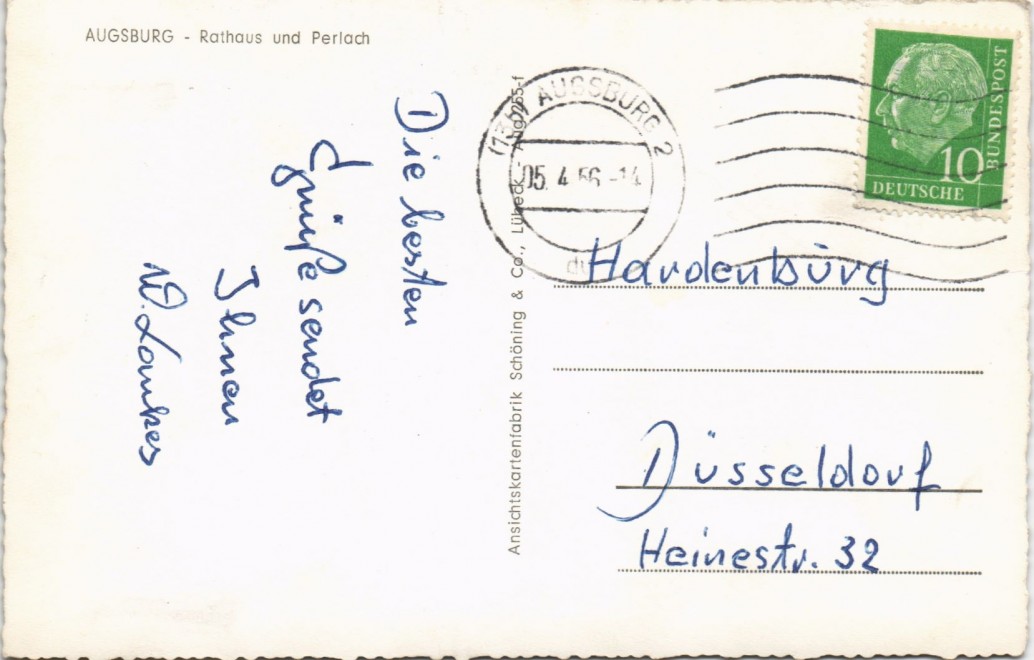 AUGSBURG - Rathaus und Perlach
Die besten
Grüße sendet
Ihnen
W.
Ansichtskartenfabrik Schöning & Co., Lübeck - Aug 255-f
AUGSBURG 2
05. 4. 56 -14
BUNDESPOST
10
DEUTSCHE
Hardenbürg
Düsseldorf
Heinestr. 32